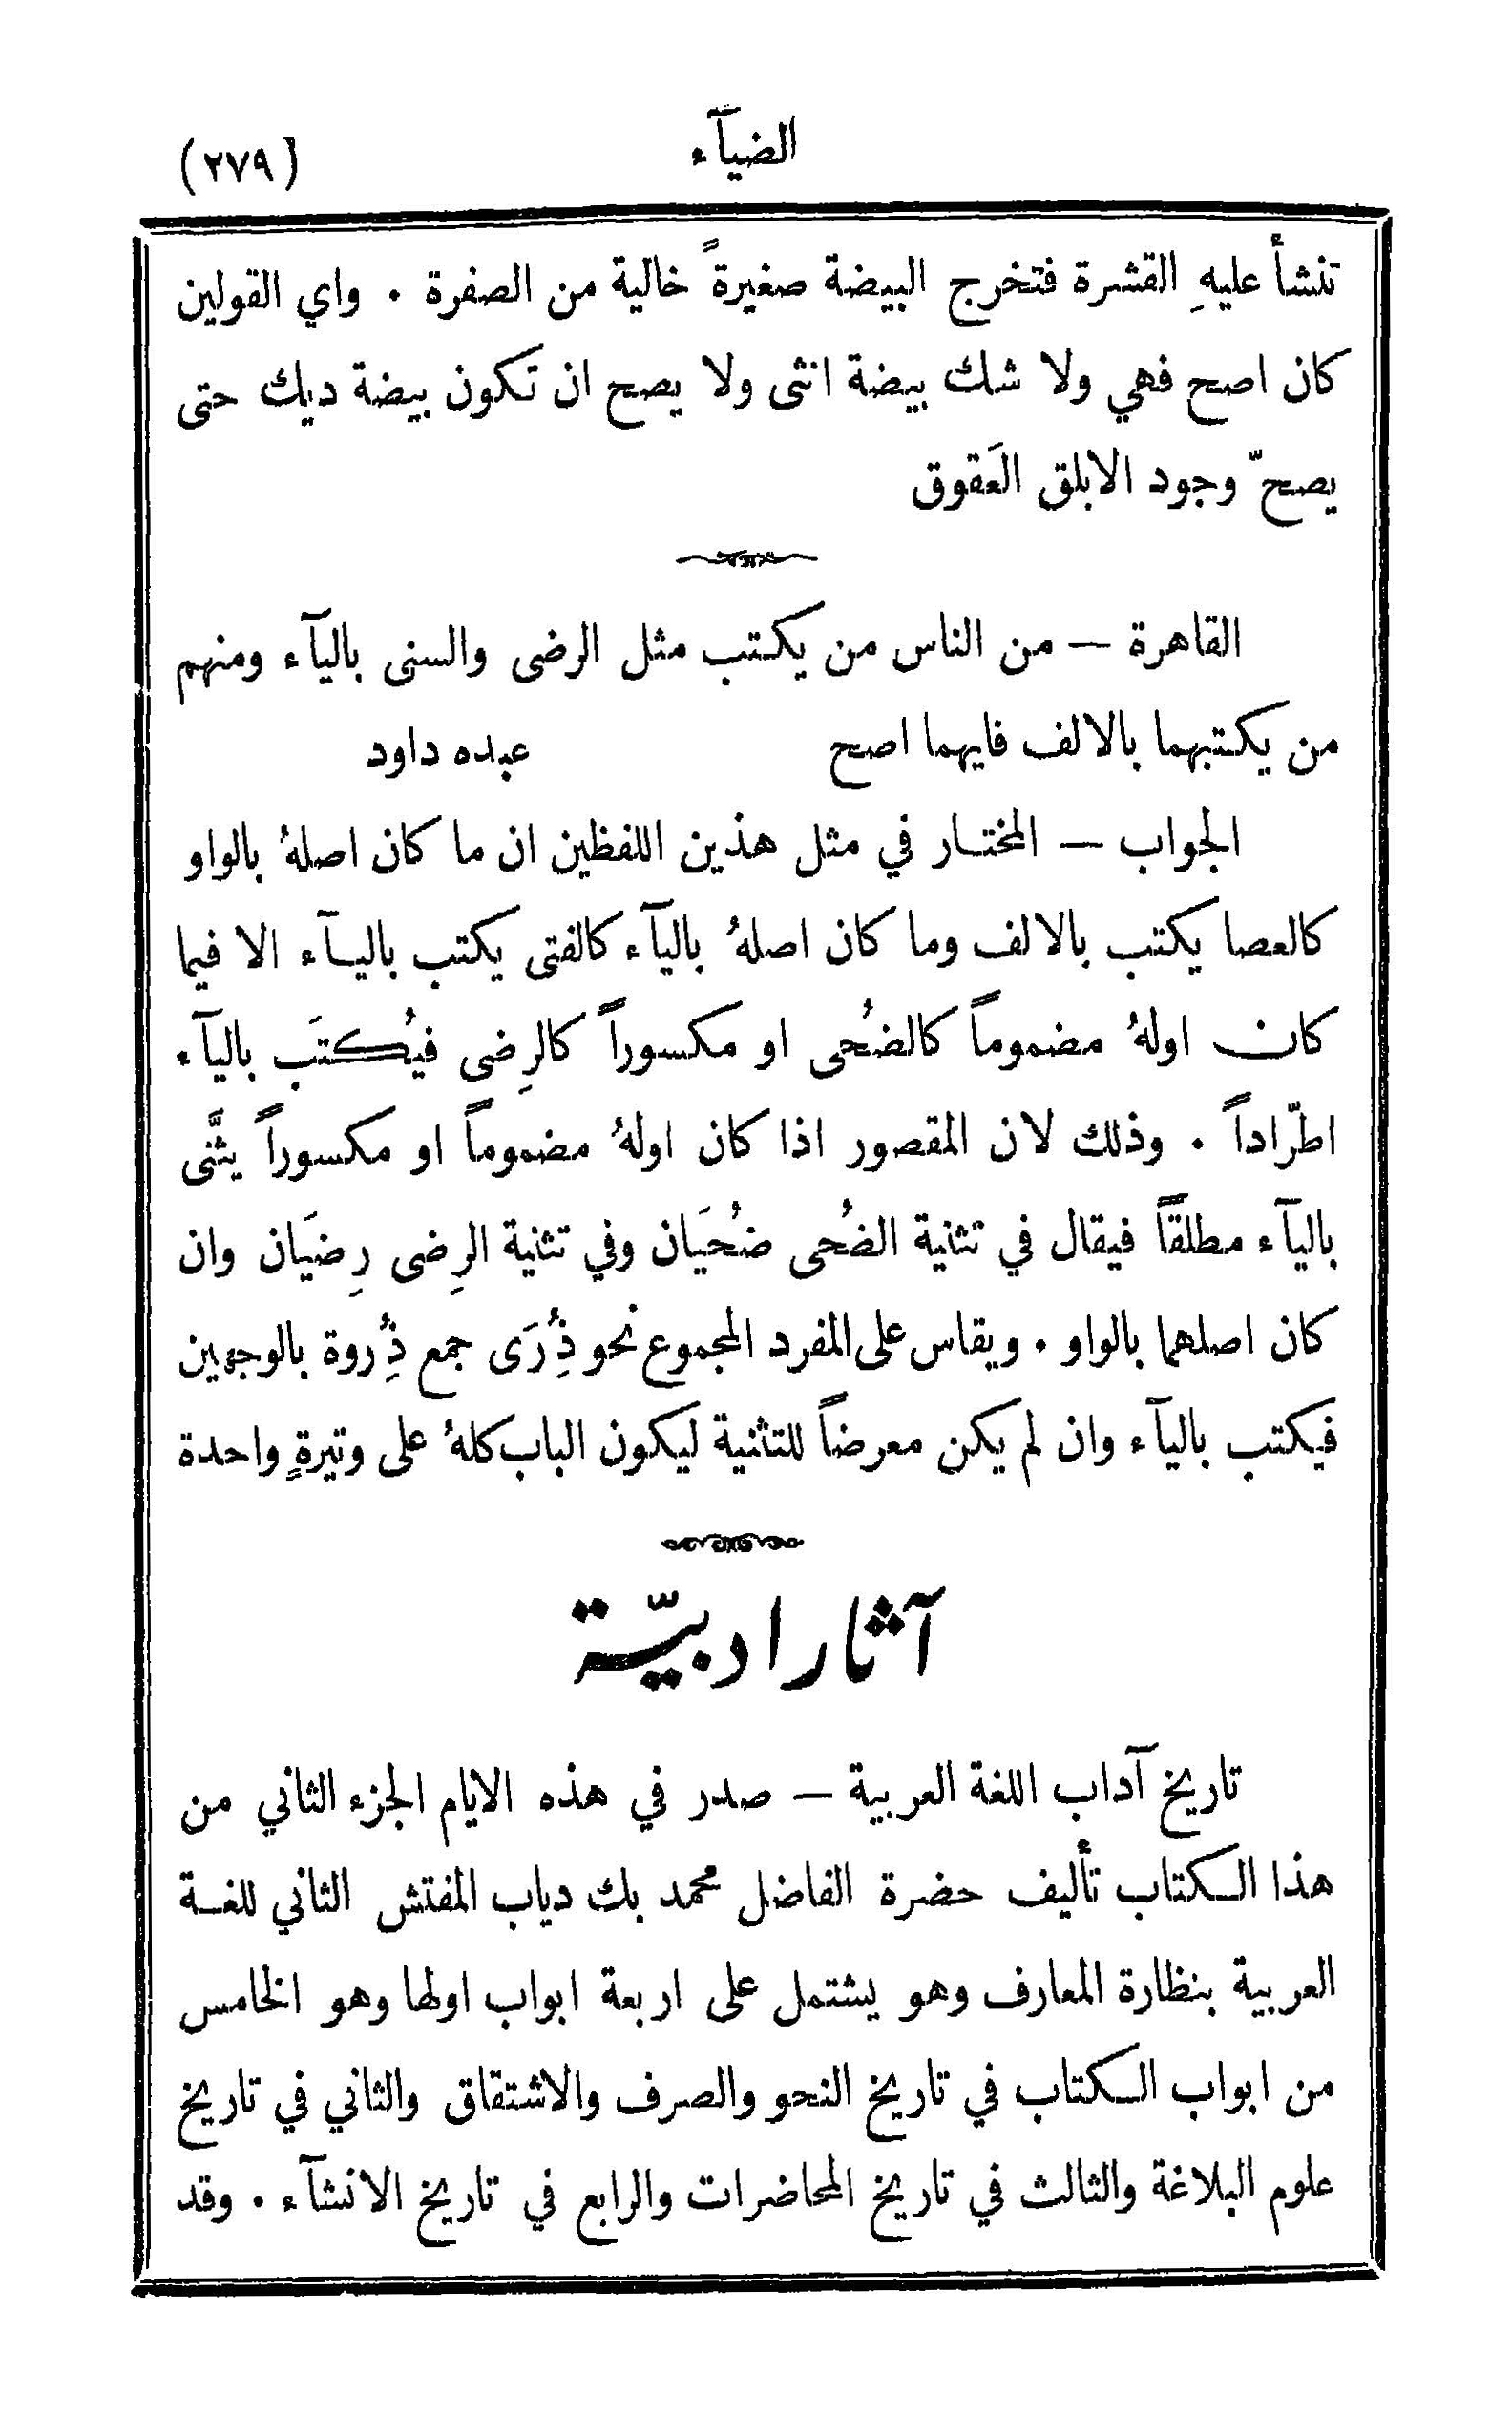 الضيآء
(٢٧٩)
تنشأ عليهِ القشرة فتخرج البيضة صغيرةً خالية من الصفرة . واي القولين
كان اصح فهي ولا شك بيضة انثى ولا يصح ان تكون بيضة ديك حتى
يصحّ وجود الابلق العَقوق
القاهرة — من الناس من يكتب مثل الرضى والسنى باليآء ومنهم
من يكتبهما بالالف فايهما اصح عبده داود
الجواب — المختار في مثل هذين اللفظين ان ما كان اصلهُ بالواو
كالعصا يكتب بالالف وما كان اصلهُ باليآء كالفتى يكتب باليآء الا فيما
كان اولهُ مضموماً كالضُحى او مكسوراً كالرِضى فيُكتَب باليآء
اطّراداً . وذلك لان المقصور اذا كان اولهُ مضموماً او مكسوراً يثَّنى
باليآء مطلقاً فيقال في تثنية الضُحى ضُحَيان وفي تثنية الرِضى رِضَيان وان
كان اصلهما بالواو . ويقاس على المفرد المجموع نحو ذُِرَى جمع ذُِروة بالوجهين
فيكتب باليآء وان لم يكن معرضاً للتثنية ليكون الباب كلهُ على وتيرةٍ واحدة
آثار ادبيّة
تاريخ آداب اللغة العربية — صدر في هذه الايام الجزء الثاني من
هذا الكتاب تأليف حضرة الفاضل محمد بك دياب المفتش الثاني للغة
العربية بنظارة المعارف وهو يشتمل على اربعة ابواب اولها وهو الخامس
من ابواب الكتاب في تاريخ النحو والصرف والاشتقاق والثاني في تاريخ
علوم البلاغة والثالث في تاريخ المحاضرات والرابع في تاريخ الانشآء . وقد